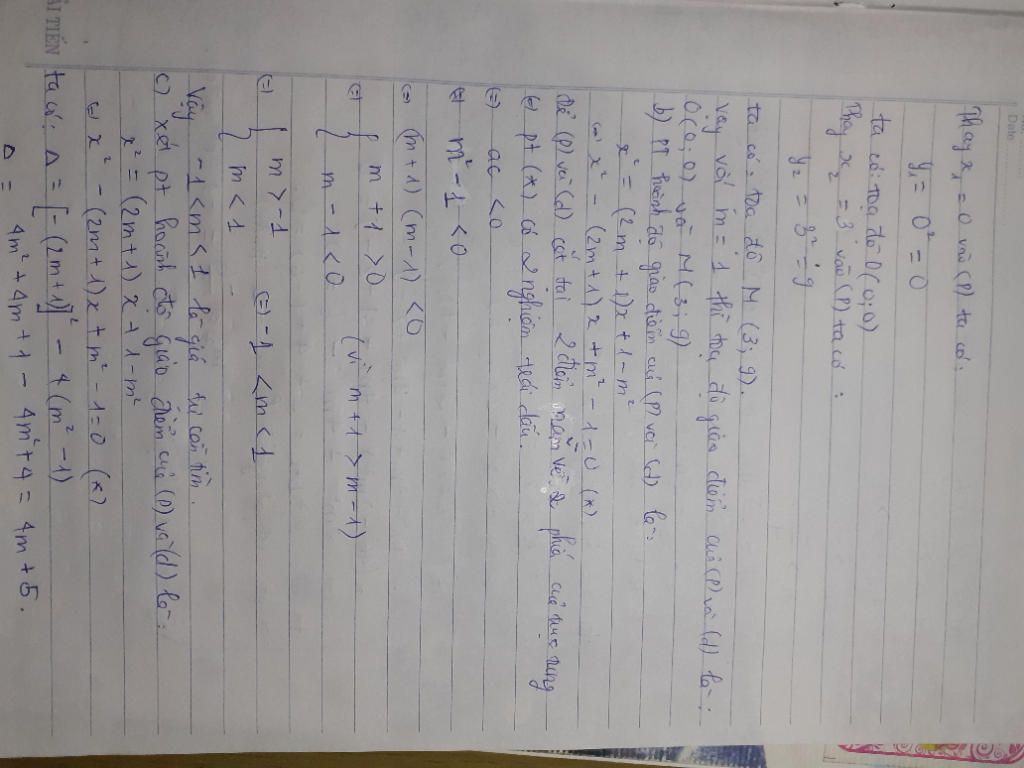 Date
ẢI TIẾN
Thay x₁ = 0 vào (P) ta có:
y₁ = 0² = 0
ta có tọa độ O(0;0)
Thay x₂ = 3 vào (P) ta có:
y₂ = 3² = 9
ta có: tọa độ M (3; 9).
Vậy với m = 1 thì tọa độ giao điểm của (P) và (d) là:
O(0; 0) và M(3; 9)
b) PT hoành độ giao điểm của (P) và (d) là:
x² = (2m + 1)x + 1 - m²
(=) x² - (2m+1)x + m² - 1 = 0 (*)
Để (P) và (d) cắt tại 2 điểm nằm về 2 phía của trục tung
(=) pt (*) có 2 nghiệm trái dấu.
(=) ac < 0
(=) m² - 1 < 0
(=) (m+1) (m-1) < 0
(=) { m + 1 > 0
m - 1 < 0 (vì m + 1 > m - 1)
(=) { m > -1
m < 1 (=) -1 < m < 1
Vậy -1 < m < 1 là giá trị cần tìm.
c) xét pt hoành độ giao điểm của (P) và (d) là:
x² = (2m+1)x + 1 - m²
(=) x² - (2m+1)x + m² - 1 = 0 (*)
ta có: Δ = [-(2m+1)]² - 4(m² - 1)
Δ = 4m² + 4m + 1 - 4m² + 4 = 4m + 5.